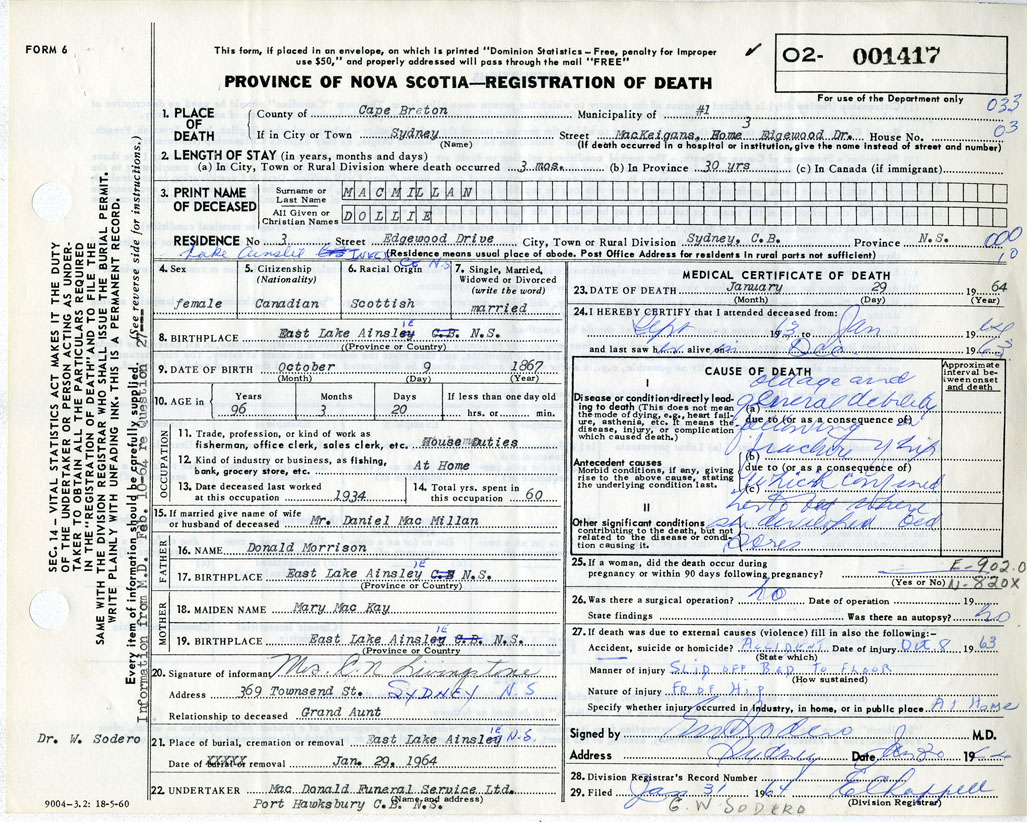 FORM 6
This form, if placed in an envelope, on which is printed "Dominion Statistics – Free, penalty for improper
use $50," and properly addressed will pass through the mail "FREE"
✓
O2- 001417
For use of the Department only
PROVINCE OF NOVA SCOTIA—REGISTRATION OF DEATH
033
03
1. PLACE OF DEATH
County of Cape Breton Municipality of #1
If in City or Town Sydney Street 3 MacKeigans, Home Edgewood Dr. House No.
(Name) (If death occurred in a hospital or institution, give the name instead of street and number)
2. LENGTH OF STAY (in years, months and days)
(a) In City, Town or Rural Division where death occurred 3 mos. (b) In Province 30 yrs (c) In Canada (if immigrant)
3. PRINT NAME OF DECEASED
Surname or Last Name MACMILLAN
All Given or Christian Names DOLLIE
RESIDENCE No 3 Street Edgewood Drive City, Town or Rural Division Sydney, C.B. Province N.S.
000
10
Lake Ainslie Inv. Co N.S.
(Residence means usual place of abode. Post Office Address for residents in rural parts not sufficient)
4. Sex
female
5. Citizenship (Nationality)
Canadian
6. Racial Origin
Scottish
7. Single, Married, Widowed or Divorced (write the word)
married
8. BIRTHPLACE East Lake Ainsley IE C.B. N.S.
((Province or Country)
9. DATE OF BIRTH October 9 1867
(Month) (Day) (Year)
10. AGE in Years Months Days If less than one day old
96 3 20 hrs. or min.
OCCUPATION
11. Trade, profession, or kind of work as fisherman, office clerk, sales clerk, etc. House Duties
12. Kind of industry or business, as fishing, bank, grocery store, etc. At Home
13. Date deceased last worked at this occupation 1934
14. Total yrs. spent in this occupation 60
15. If married give name of wife or husband of deceased Mr. Daniel Mac Millan
FATHER
16. NAME Donald Morrison
17. BIRTHPLACE East Lake Ainsley IE C.B N.S.
(Province or Country)
MOTHER
18. MAIDEN NAME Mary Mac Kay
19. BIRTHPLACE East Lake Ainsley IE C.B. N.S.
(Province or Country
20. Signature of informant Mrs. C. N. Livingstone
Address 369 Townsend St. SYDNEY N S
Relationship to deceased Grand Aunt
Dr. W. Sodero
21. Place of burial, cremation or removal East Lake Ainsley IE N.S.
Date of burial or XXXXX removal Jan. 29, 1964
22. UNDERTAKER Mac Donald Funeral Service Ltd.
Port Hawksbury C.B. N.S.
(Name and address)
9004—3.2: 18-5-60
MEDICAL CERTIFICATE OF DEATH
23. DATE OF DEATH January 29 1964
(Month) (Day) (Year)
24. I HEREBY CERTIFY that I attended deceased from:
Sept 1963 to Jan 1964
and last saw h alive on Dec 1963
CAUSE OF DEATH
Approximate interval between onset and death
I
Disease or condition directly leading to death (This does not mean the mode of dying, e.g., heart failure, asthenia, etc. It means the disease, injury, or complication which caused death.)
Antecedent causes
Morbid conditions, if any, giving rise to the above cause, stating the underlying condition last.
II
Other significant conditions
contributing to the death, but not related to the disease or condition causing it.
old age and
(a) general debility
due to (or as a consequence of)
following
(b) fracture of hip
due to (or as a consequence of)
(c) which confined
her to bed where
she developed bed
sores
25. If a woman, did the death occur during
pregnancy or within 90 days following pregnancy?
(Yes or No)
E-902.0
N-820X
26. Was there a surgical operation? no Date of operation 19
State findings Was there an autopsy? no
27. If death was due to external causes (violence) fill in also the following:–
Accident, suicide or homicide? ACCIDENT Date of injury Oct 8 1963
(State which)
Manner of injury SLIP OFF BED TO FLOOR
(How sustained)
Nature of injury FR OF HIP
Specify whether injury occurred in industry, in home, or in public place AT HOME
Signed by Sodero M.D.
Address Sydney Date Jan 30 1964
28. Division Registrar's Record Number
29. Filed Jan 31 1964 E Chappell
(Division Registrar)
G. W SODERO
SEC. 14 – VITAL STATISTICS ACT MAKES IT THE DUTY
OF THE UNDERTAKER OR PERSON ACTING AS UNDER-
TAKER TO OBTAIN ALL THE PARTICULARS REQUIRED
IN THE "REGISTRATION OF DEATH" AND TO FILE THE
SAME WITH THE DIVISION REGISTRAR WHO SHALL ISSUE THE BURIAL PERMIT.
WRITE PLAINLY WITH UNFADING INK. THIS IS A PERMANENT RECORD.
Every item of information should be carefully supplied. (See reverse side for instructions.)
Information from M.D. Feb. 10-64 re Question 27---